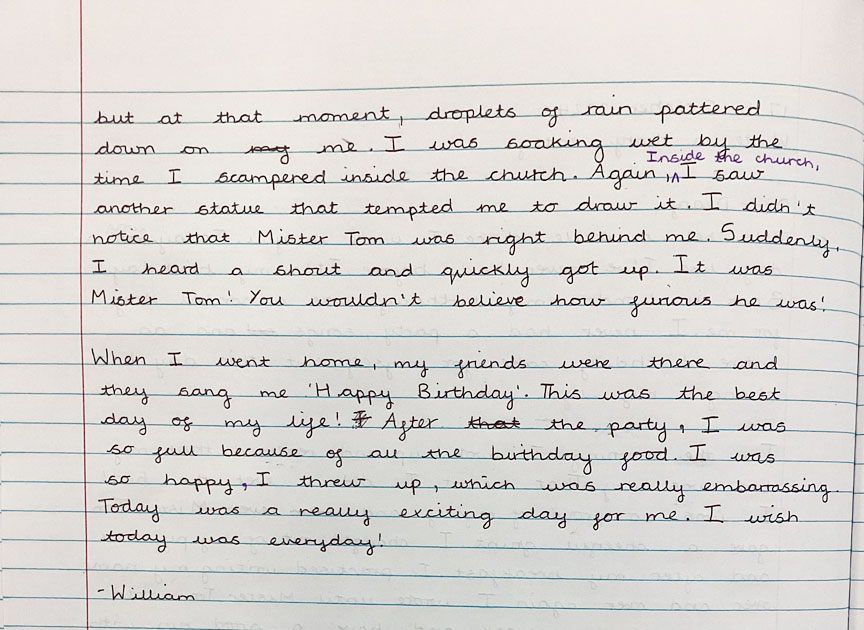 but at that moment, droplets of rain pattered
down on my me. I was soaking wet by the
Inside the church,
time I scampered inside the church. Again, ^ I saw
another statue that tempted me to draw it. I didn't
notice that Mister Tom was right behind me. Suddenly,
I heard a shout and quickly got up. It was
Mister Tom! You wouldn't believe how furious he was!
When I went home, my friends were there and
they sang me 'Happy Birthday'. This was the best
day of my life! I After that the party, I was
so full because of all the birthday food. I was
so happy, I threw up, which was really embarrassing.
Today was a really exciting day for me. I wish
today was everyday!
-William